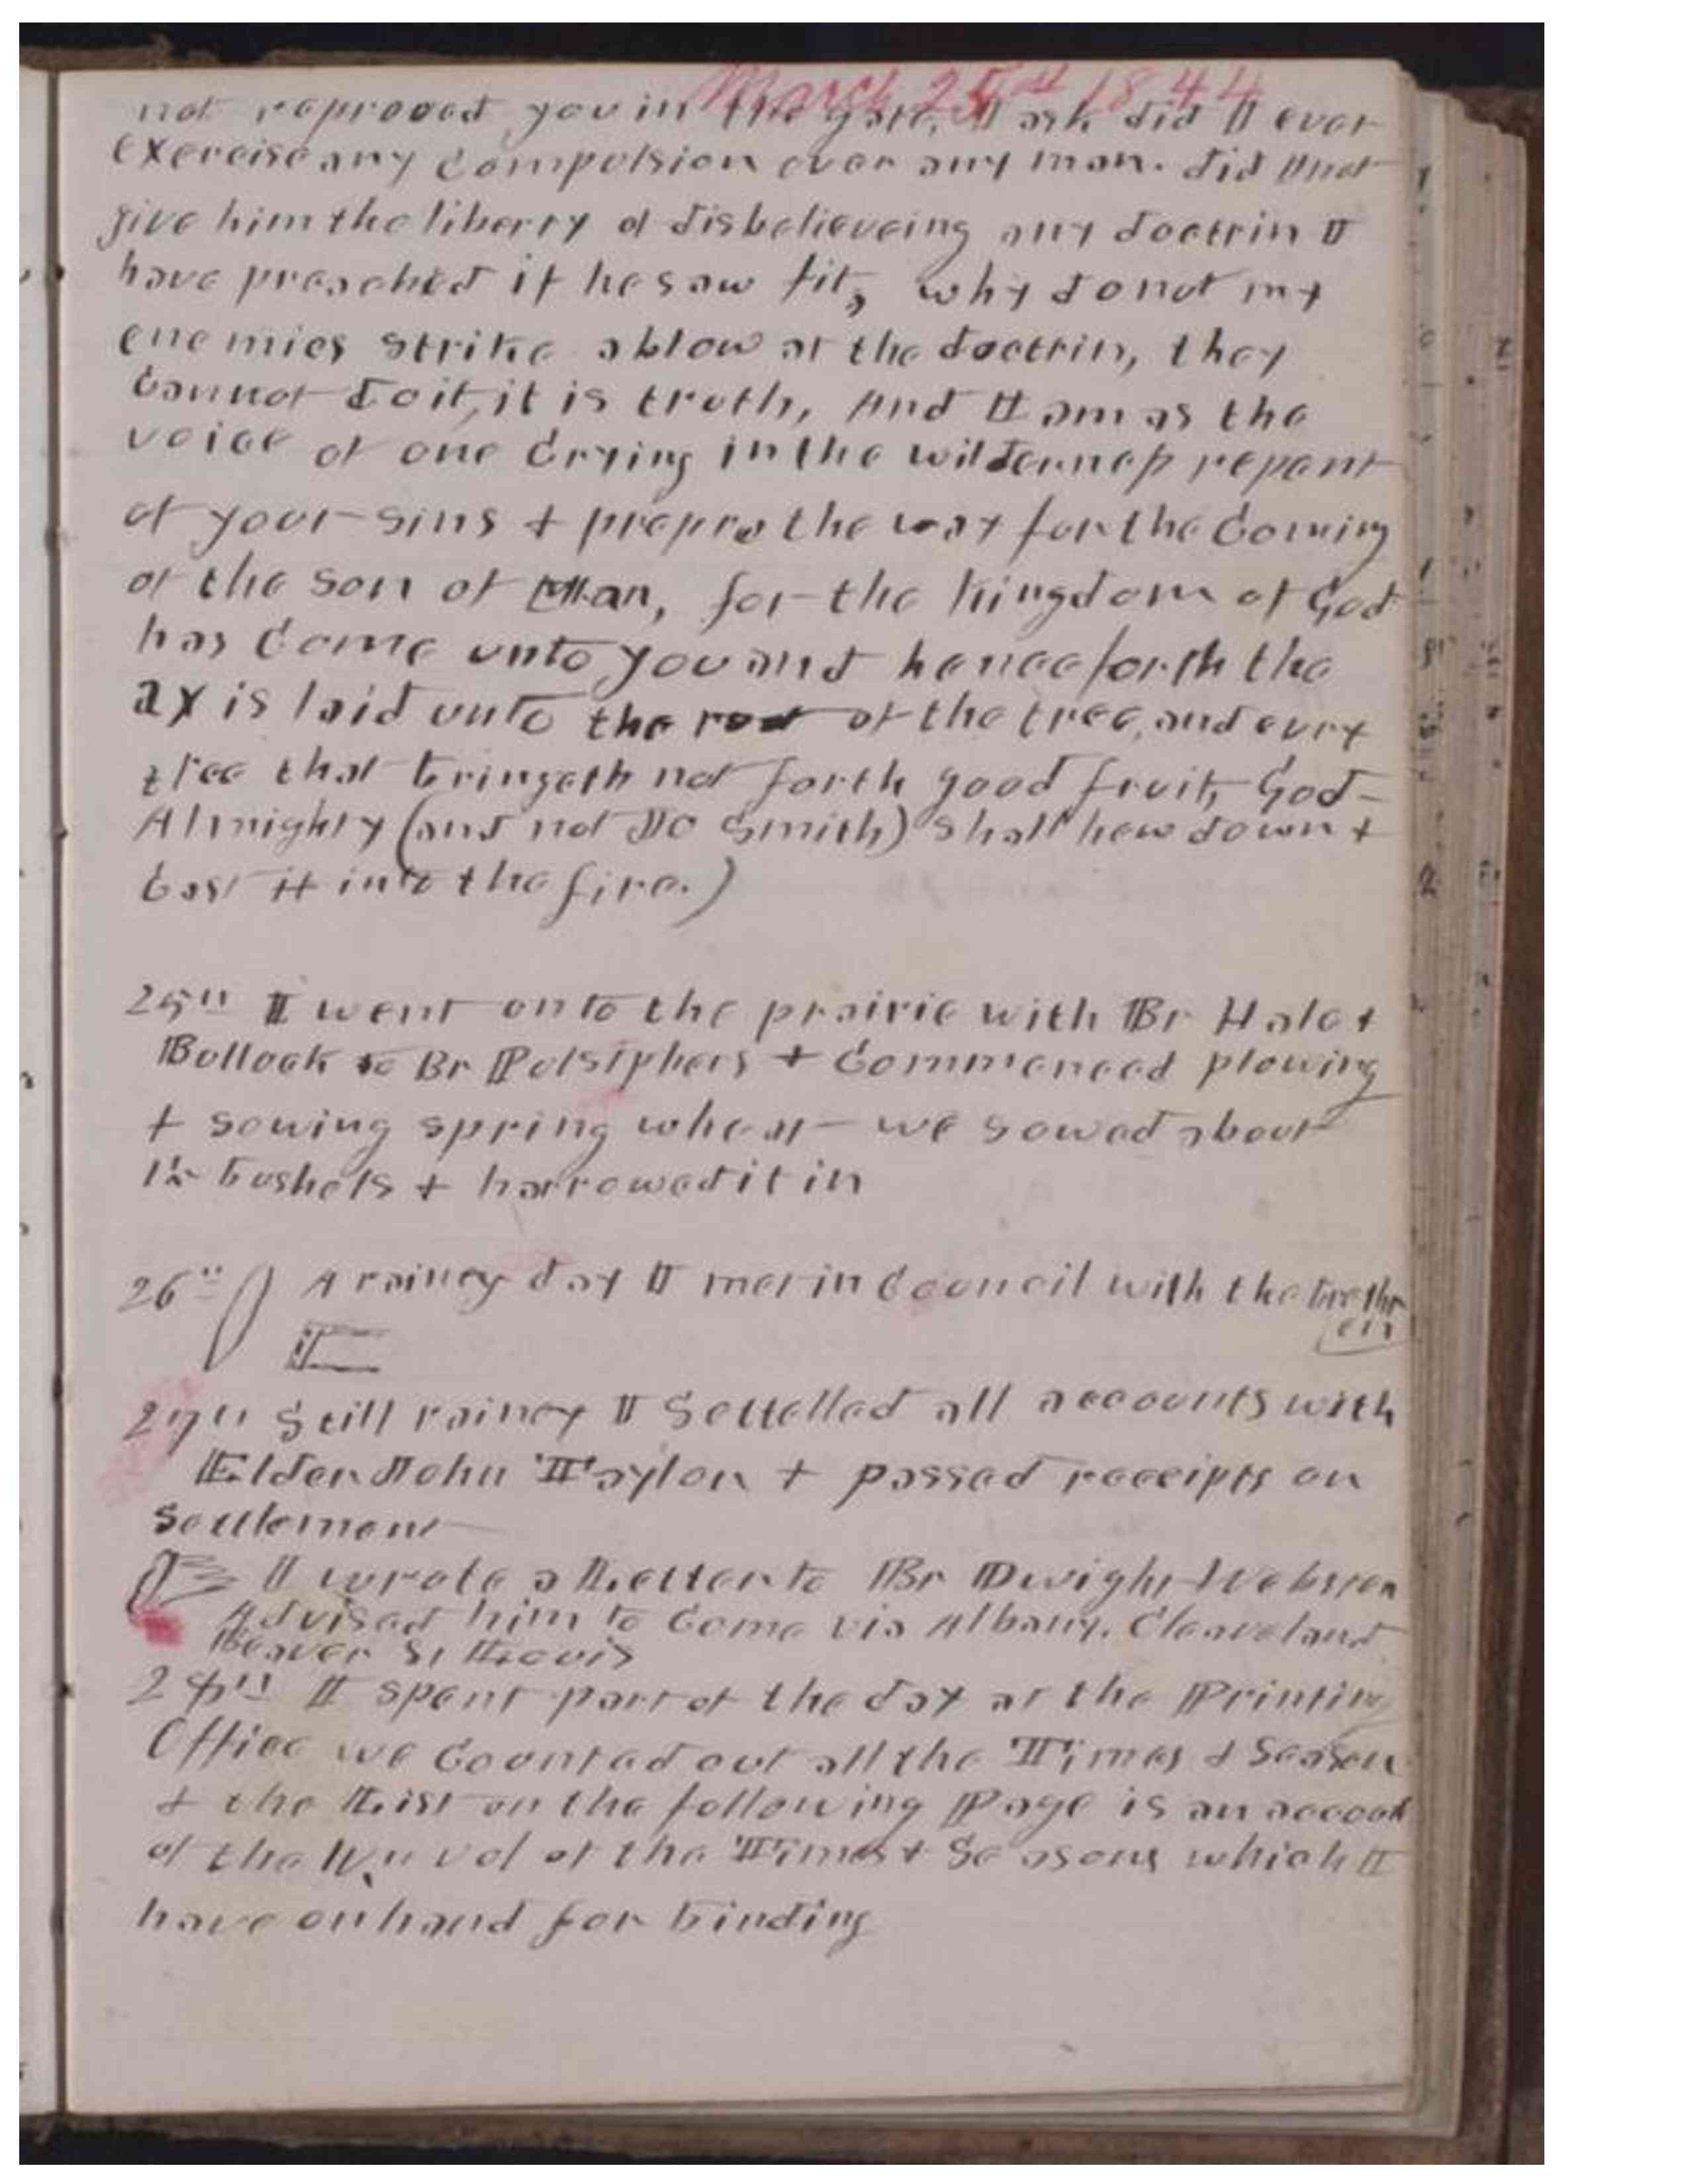 March 25th 1844
not reproved you in the gate, I ask did I ever
exercise any compulsion over any man. did I not
give him the liberty of disbelieveing any doctrin I
have preached if he saw fit, why do not my
enemies strike a blow at the doctrin, they
cannot do it, it is truth, And I am as the
voice of one Crying in the wilderness repent
of your sins & prepre the way for the Coming
of the son of Man, for the kingdom of God
has Come unto you and henceforth the
ax is laid unto the root of the tree, and evry
tree that bringeth not forth good fruit, God
Almighty (and not Jo Smith) shall hew down &
Cast it into the fire.)
25th I went onto the prairie with Br Hale &
Bullock to Br Pulsiphers & Commenced plowing
& sowing spring wheat we sowed about
1½ bushels & harrowed it in
26th A rainey day I met in Council with the brethr
en
27th Still rainey I Settelled all accounts with
Elder John Taylor & passed receipts on
settlement
I wrote a Letter to Br Dwight Webster
Advised him to Come via Albany, Cleaveland
Beaver St Louis
28th I spent part of the day at the Printing
Office we Counted out all the Times & Season
& the List on the following Page is an accout
of the vol of the Times & Seasons which I
have on hand for binding